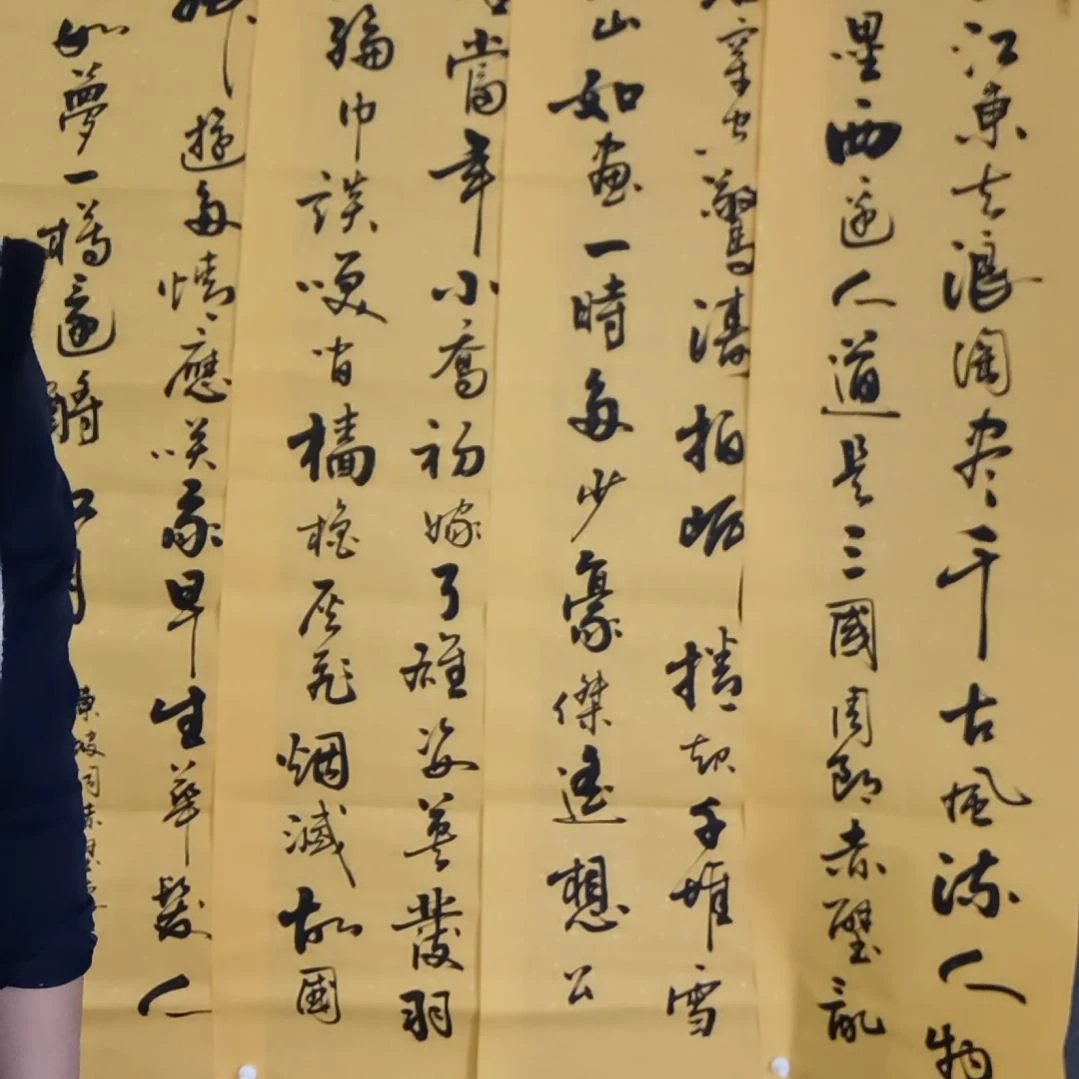 江東去浪淘尽千古風流人物
壘西邊人道是三國周郎赤壁亂
穿空驚濤拍岸捲起千堆雪
山如画一時多少豪傑遙想公
當年小喬初嫁了雄姿英發羽
綸巾談咲间檣櫓灰飛烟滅故國
遊多情應咲我早生華髮人
如夢一樽還酹江月
東坡词赤壁